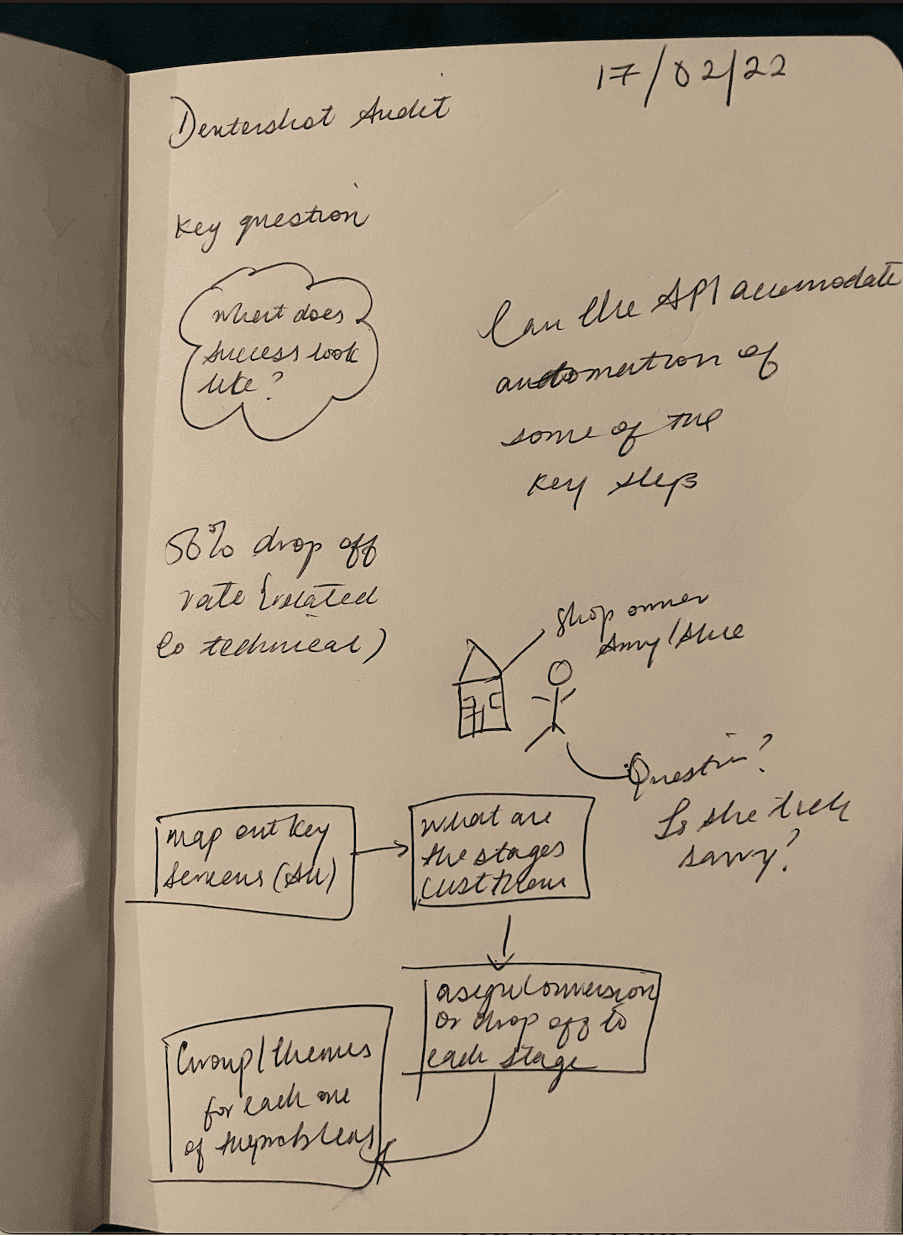 17/02/22
Dentershot Audit
Key question
What does
success look
like?
Can the API accomodate
automation of
some of the
key steps
56% drop off
rate (related
to technical)
Shop owner
Question?
Is she tech
savvy?
Map out key
screens (All)
What are
the stages
assign conversion
or drop off to
each stage
Group/themes
for each one
of the problems